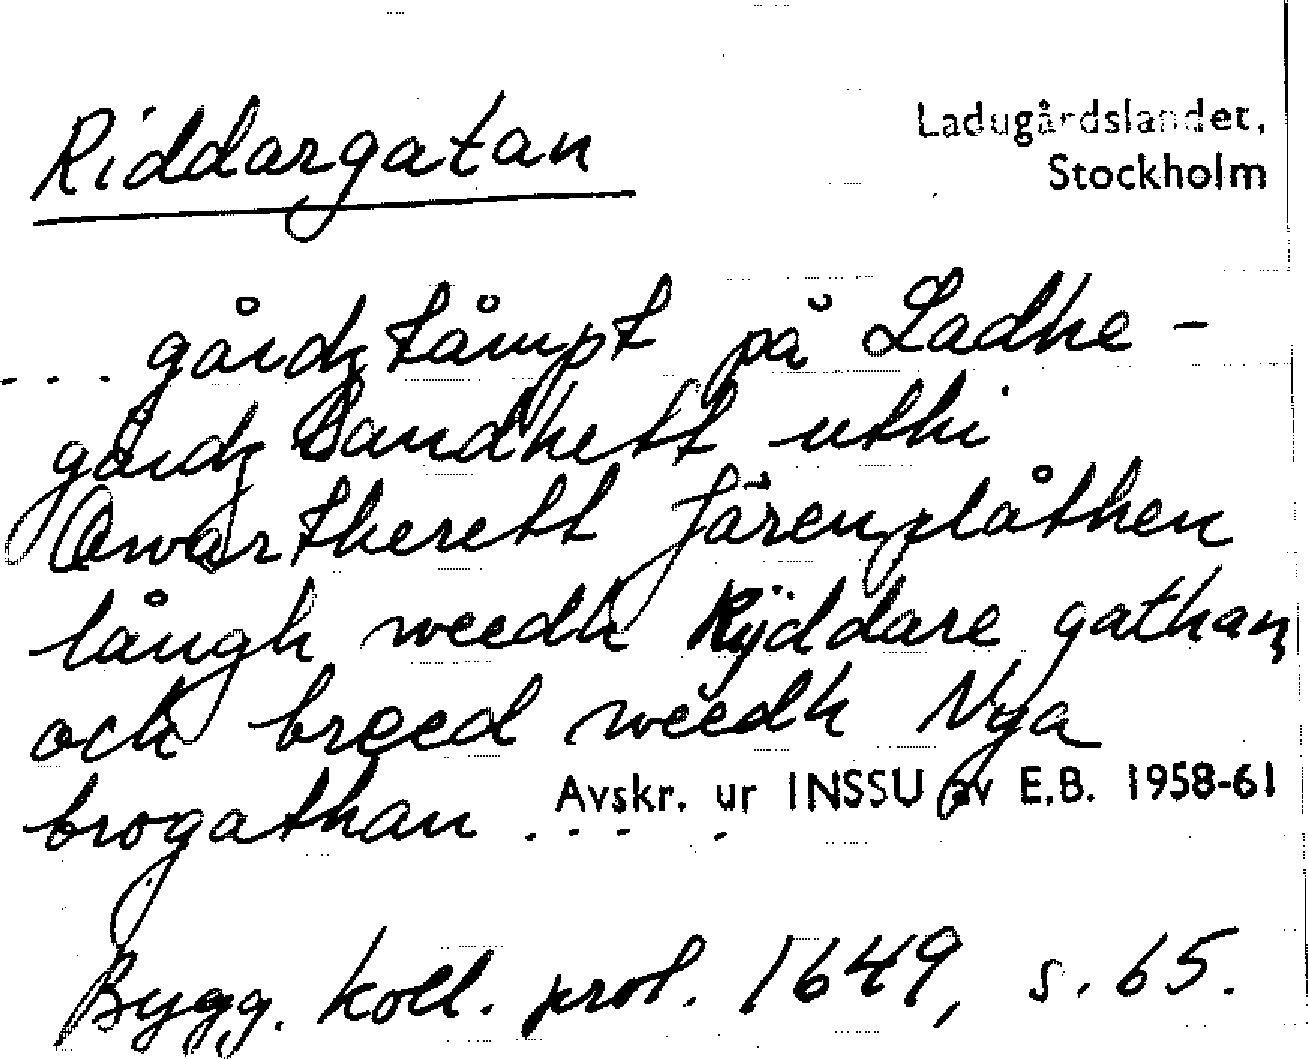 Riddargatan
Ladugårdslandet,
Stockholm
... gårdz tåmpt på Ladhe-
gårdz Landhett uthi
Qwartherett Järenplåthen
långh weedh Rÿddare gathan,
och breed weedh Nya
brogathan . . . .
Avskr. ur INSSU av E.B. 1958-61
Bygg. koll. prot. 1649, s. 65.